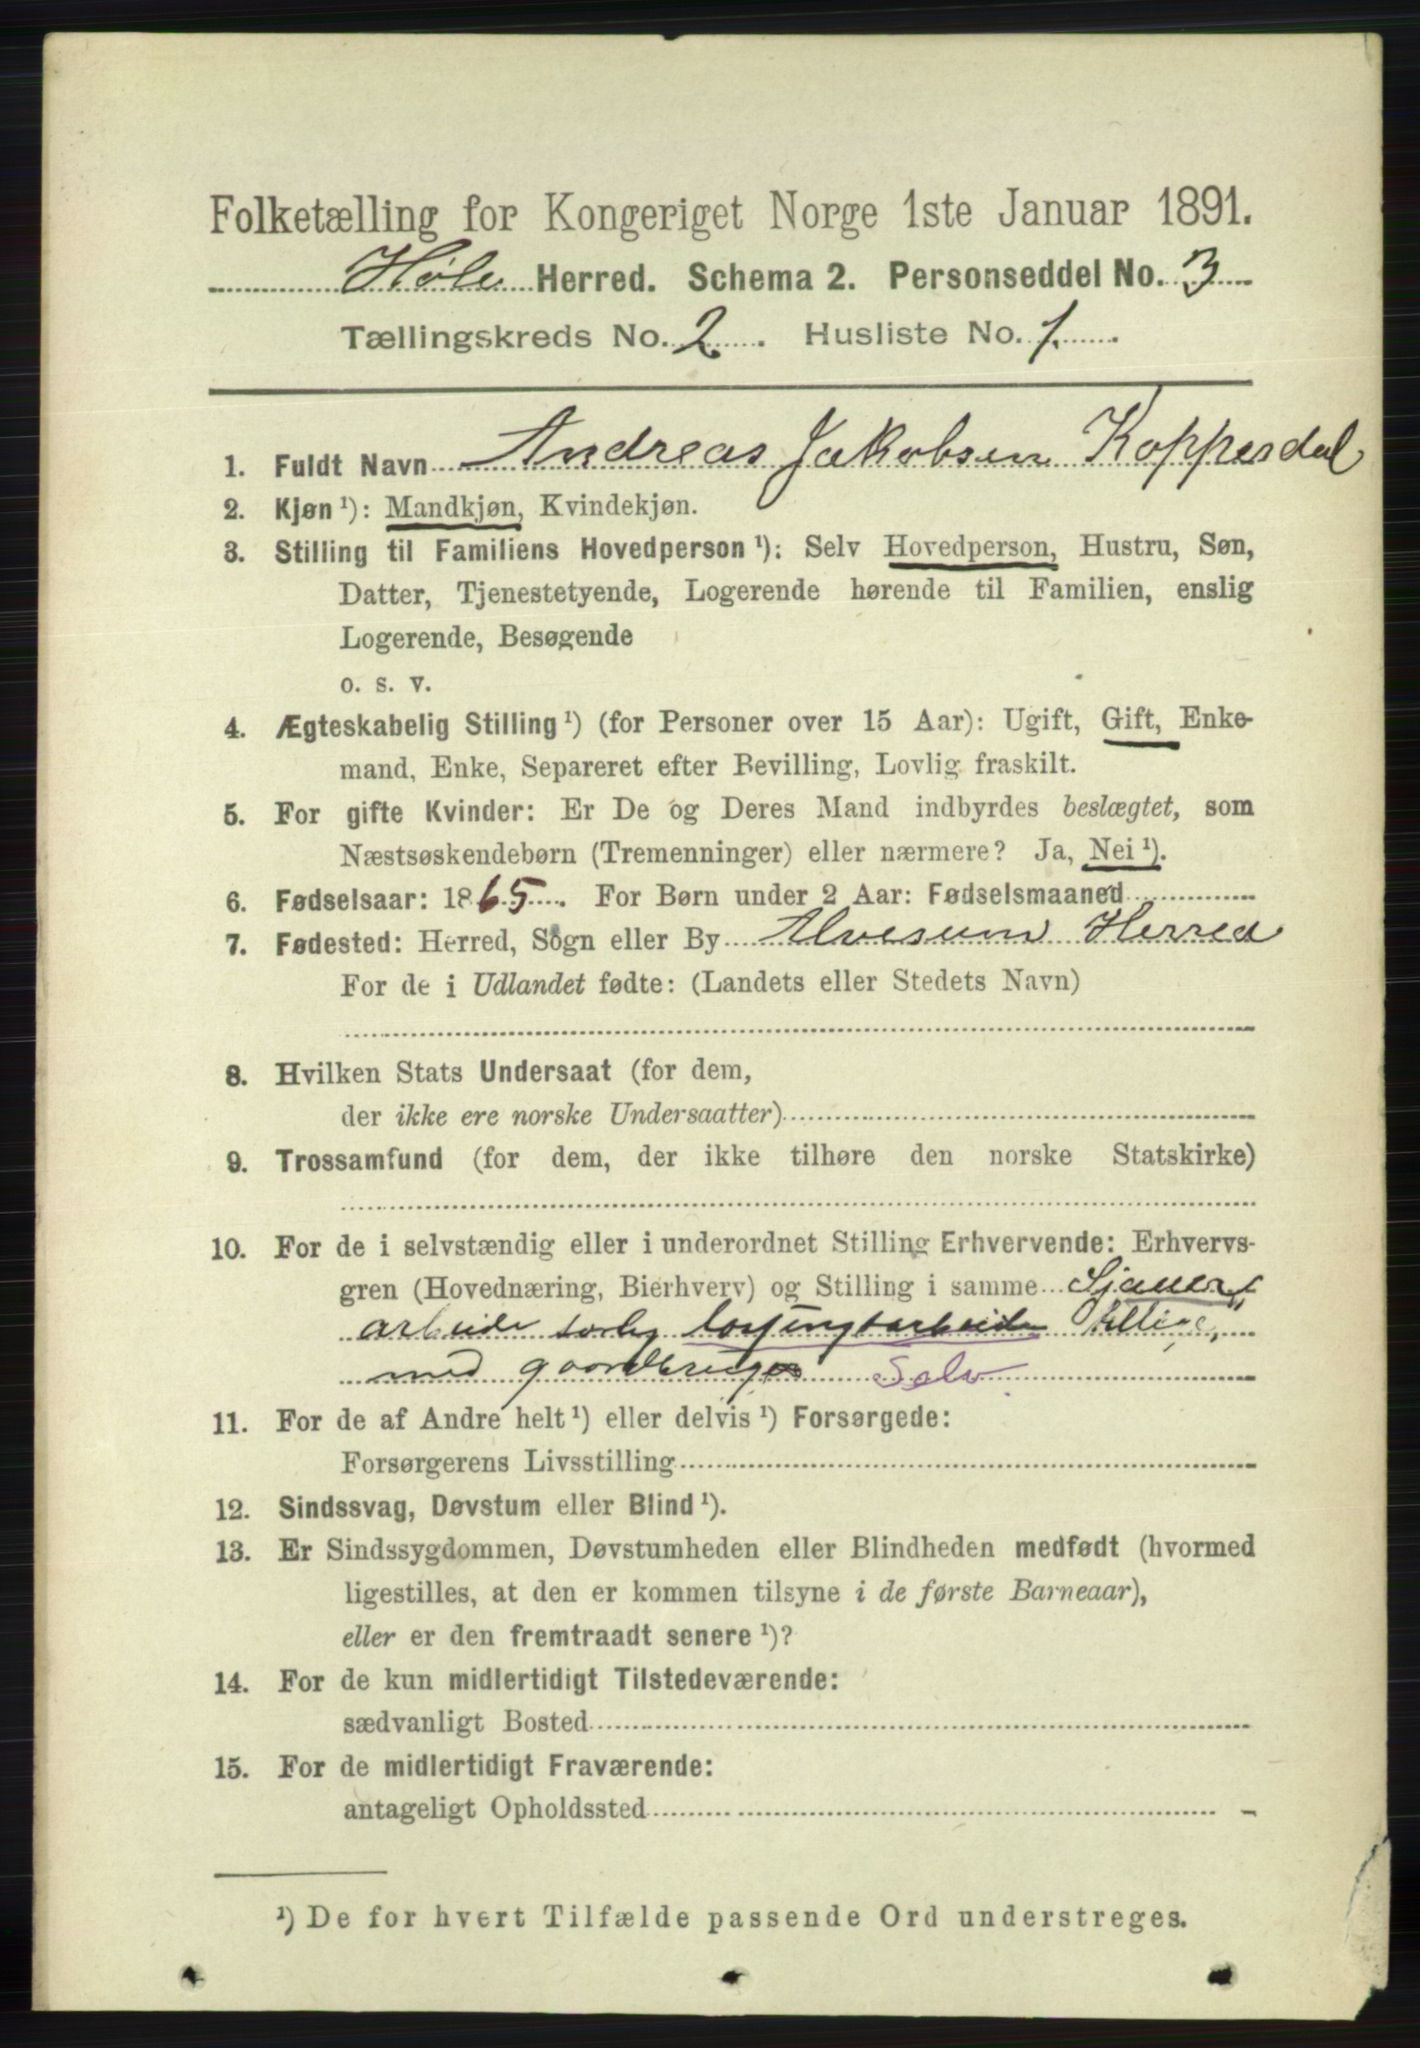 Folketælling for Kongeriget Norge 1ste Januar 1891.
Høle Herred. Schema 2. Personseddel No. 3
Tællingskreds No. 2. Husliste No. 1.
1. Fuldt Navn Andreas Jakobsen Koppesdal
2. Kjøn ¹): Mandkjøn, Kvindekjøn.
3. Stilling til Familiens Hovedperson ¹): Selv Hovedperson, Hustru, Søn,
Datter, Tjenestetyende, Logerende hørende til Familien, enslig
Logerende, Besøgende
o. s. v.
4. Ægteskabelig Stilling ¹) (for Personer over 15 Aar): Ugift, Gift, Enke-
mand, Enke, Separeret efter Bevilling, Lovlig fraskilt.
5. For gifte Kvinder: Er De og Deres Mand indbyrdes beslægtet, som
Næstsøskendebørn (Tremenninger) eller nærmere? Ja, Nei ¹).
6. Fødselsaar: 1865. For Børn under 2 Aar: Fødselsmaaned
7. Fødested: Herred, Sogn eller By Alvesum Herred
For de i Udlandet fødte: (Landets eller Stedets Navn)
8. Hvilken Stats Undersaat (for dem,
der ikke ere norske Undersaatter)
9. Trossamfund (for dem, der ikke tilhøre den norske Statskirke)
10. For de i selvstændig eller i underordnet Stilling Erhvervende: Erhvervs-
gren (Hovednæring, Bierhverv) og Stilling i samme Sjauer
arbeide
med gaardbruge Selv
11. For de af Andre helt ¹) eller delvis ¹) Forsørgede:
Forsørgerens Livsstilling
12. Sindssvag, Døvstum eller Blind ¹).
13. Er Sindssygdommen, Døvstumheden eller Blindheden medfødt (hvormed
ligestilles, at den er kommen tilsyne i de første Barneaar),
eller er den fremtraadt senere ¹)?
14. For de kun midlertidigt Tilstedeværende:
sædvanligt Bosted
15. For de midlertidigt Fraværende:
antageligt Opholdssted
¹) De for hvert Tilfælde passende Ord understreges.